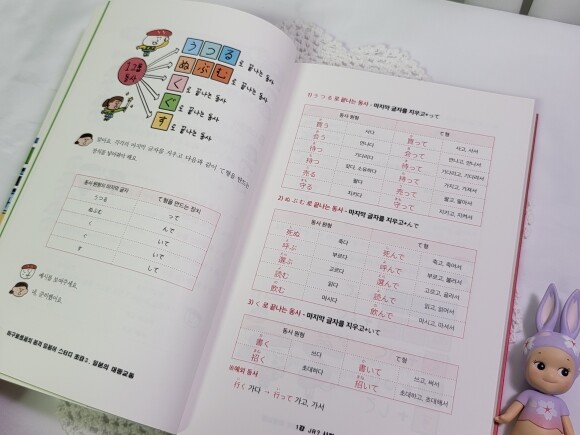 1그룹
동사
う つ る 로 끝나는 동사
ぬ ぶ む 로 끝나는 동사
く 로 끝나는 동사
ぐ 로 끝나는 동사
す 로 끝나는 동사
맞아요, 각각의 마지막 글자를 지우고 다음과 같이 て형을 만드는
장치를 넣어줘야 해요.
동사 원형의 마지막 글자 て형을 만드는 장치
うつる って
ぬぶむ んで
く いて
ぐ いで
す して
예시를 보여주세요.
네, 좋아했어요.
1) う つ る 로 끝나는 동사 - 마지막 글자를 지우고+って
동사 원형 て형
買う 사다 買って 사고, 사서
会う 만나다 会って 만나고, 만나서
待つ 기다리다 待って 기다리고, 기다려서
持つ 갖다, 소유하다 持って 가지고, 가져서
売る 팔다 売って 팔고, 팔아서
守る 지키다 守って 지키고, 지켜서
2) ぬ ぶ む 로 끝나는 동사 - 마지막 글자를 지우고+んで
동사 원형 て형
死ぬ 죽다 死んで 죽고, 죽어서
呼ぶ 부르다 呼んで 부르고, 불러서
選ぶ 고르다 選んで 고르고, 골라서
読む 읽다 読んで 읽고, 읽어서
飲む 마시다 飲んで 마시고, 마셔서
3) く 로 끝나는 동사 - 마지막 글자를 지우고+いて
동사 원형 て형
書く 쓰다 書いて 쓰고, 써서
招く 초대하다 招いて 초대하고, 초대해서
※예외 동사
行く 가다 → 行って 가고, 가서